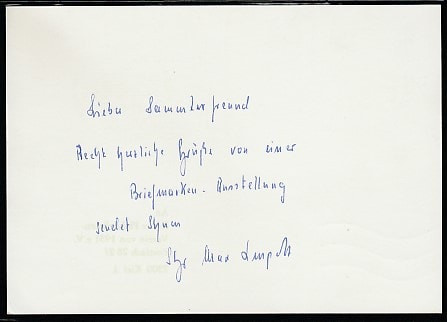 Lieber Sammlerfreund
Recht herzliche Grüße von einer
Briefmarken-Ausstellung
sendet Ihnen
Max